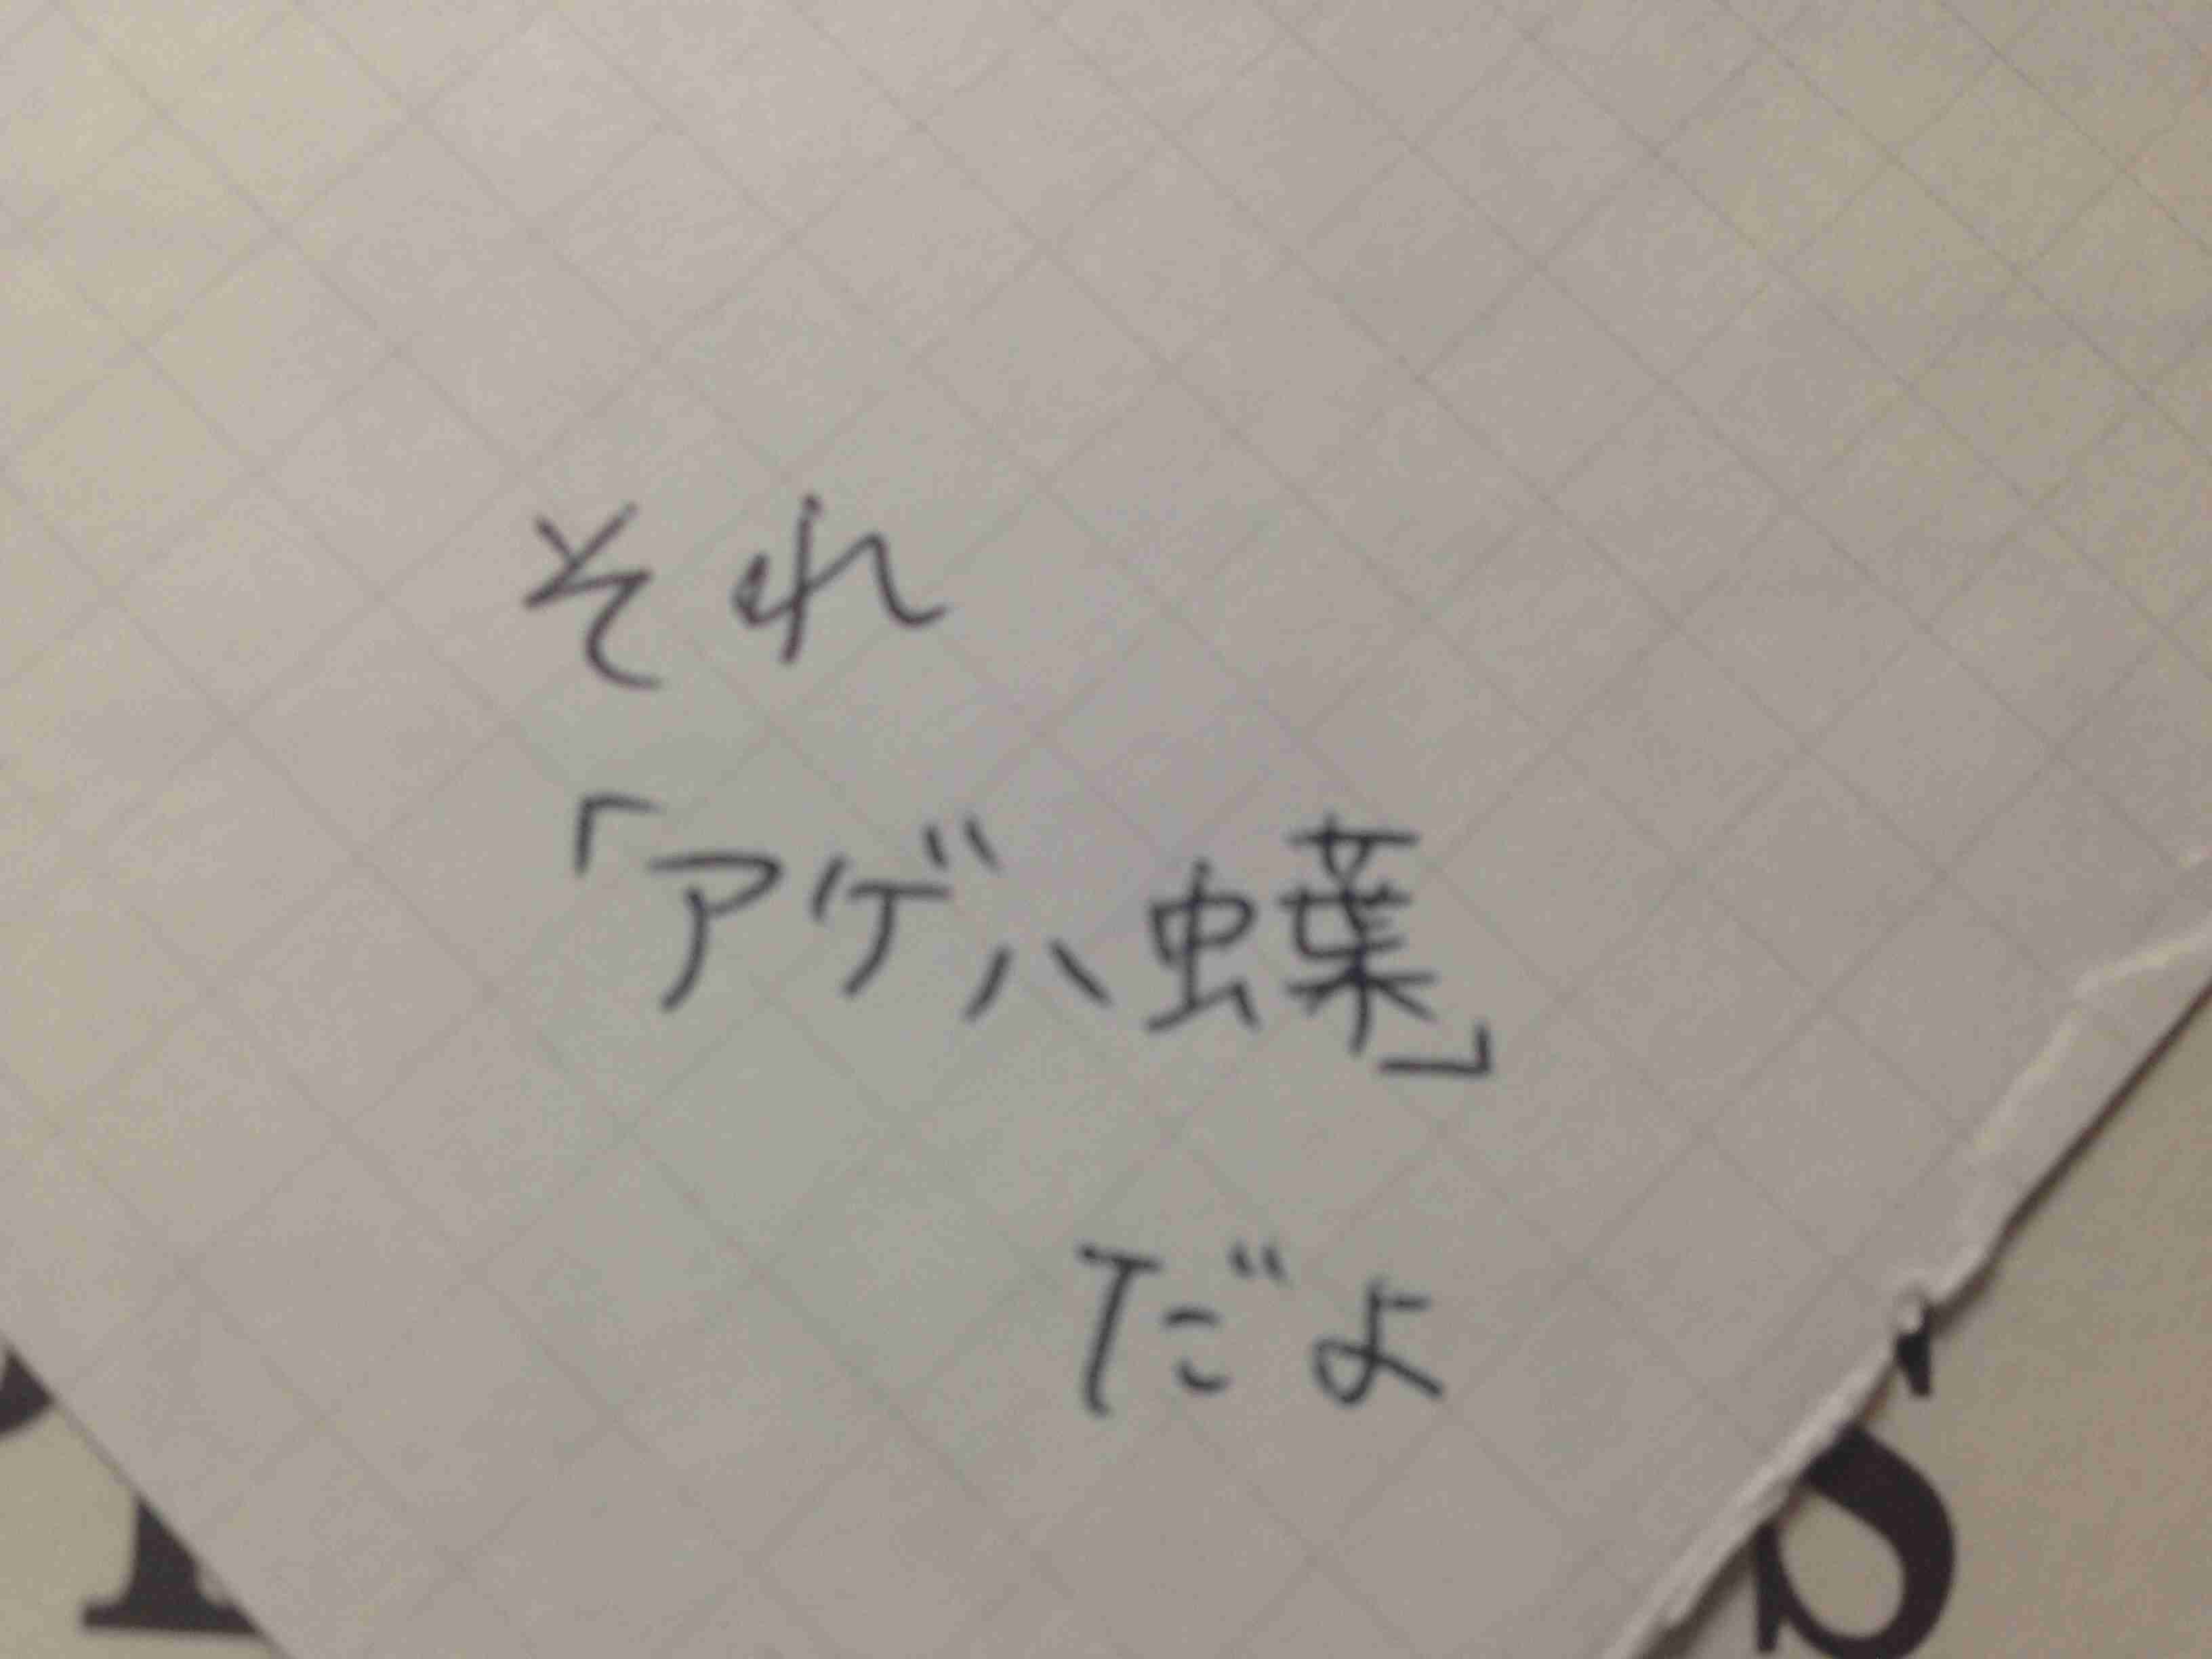 それ
「アゲハ蝶」
だよ